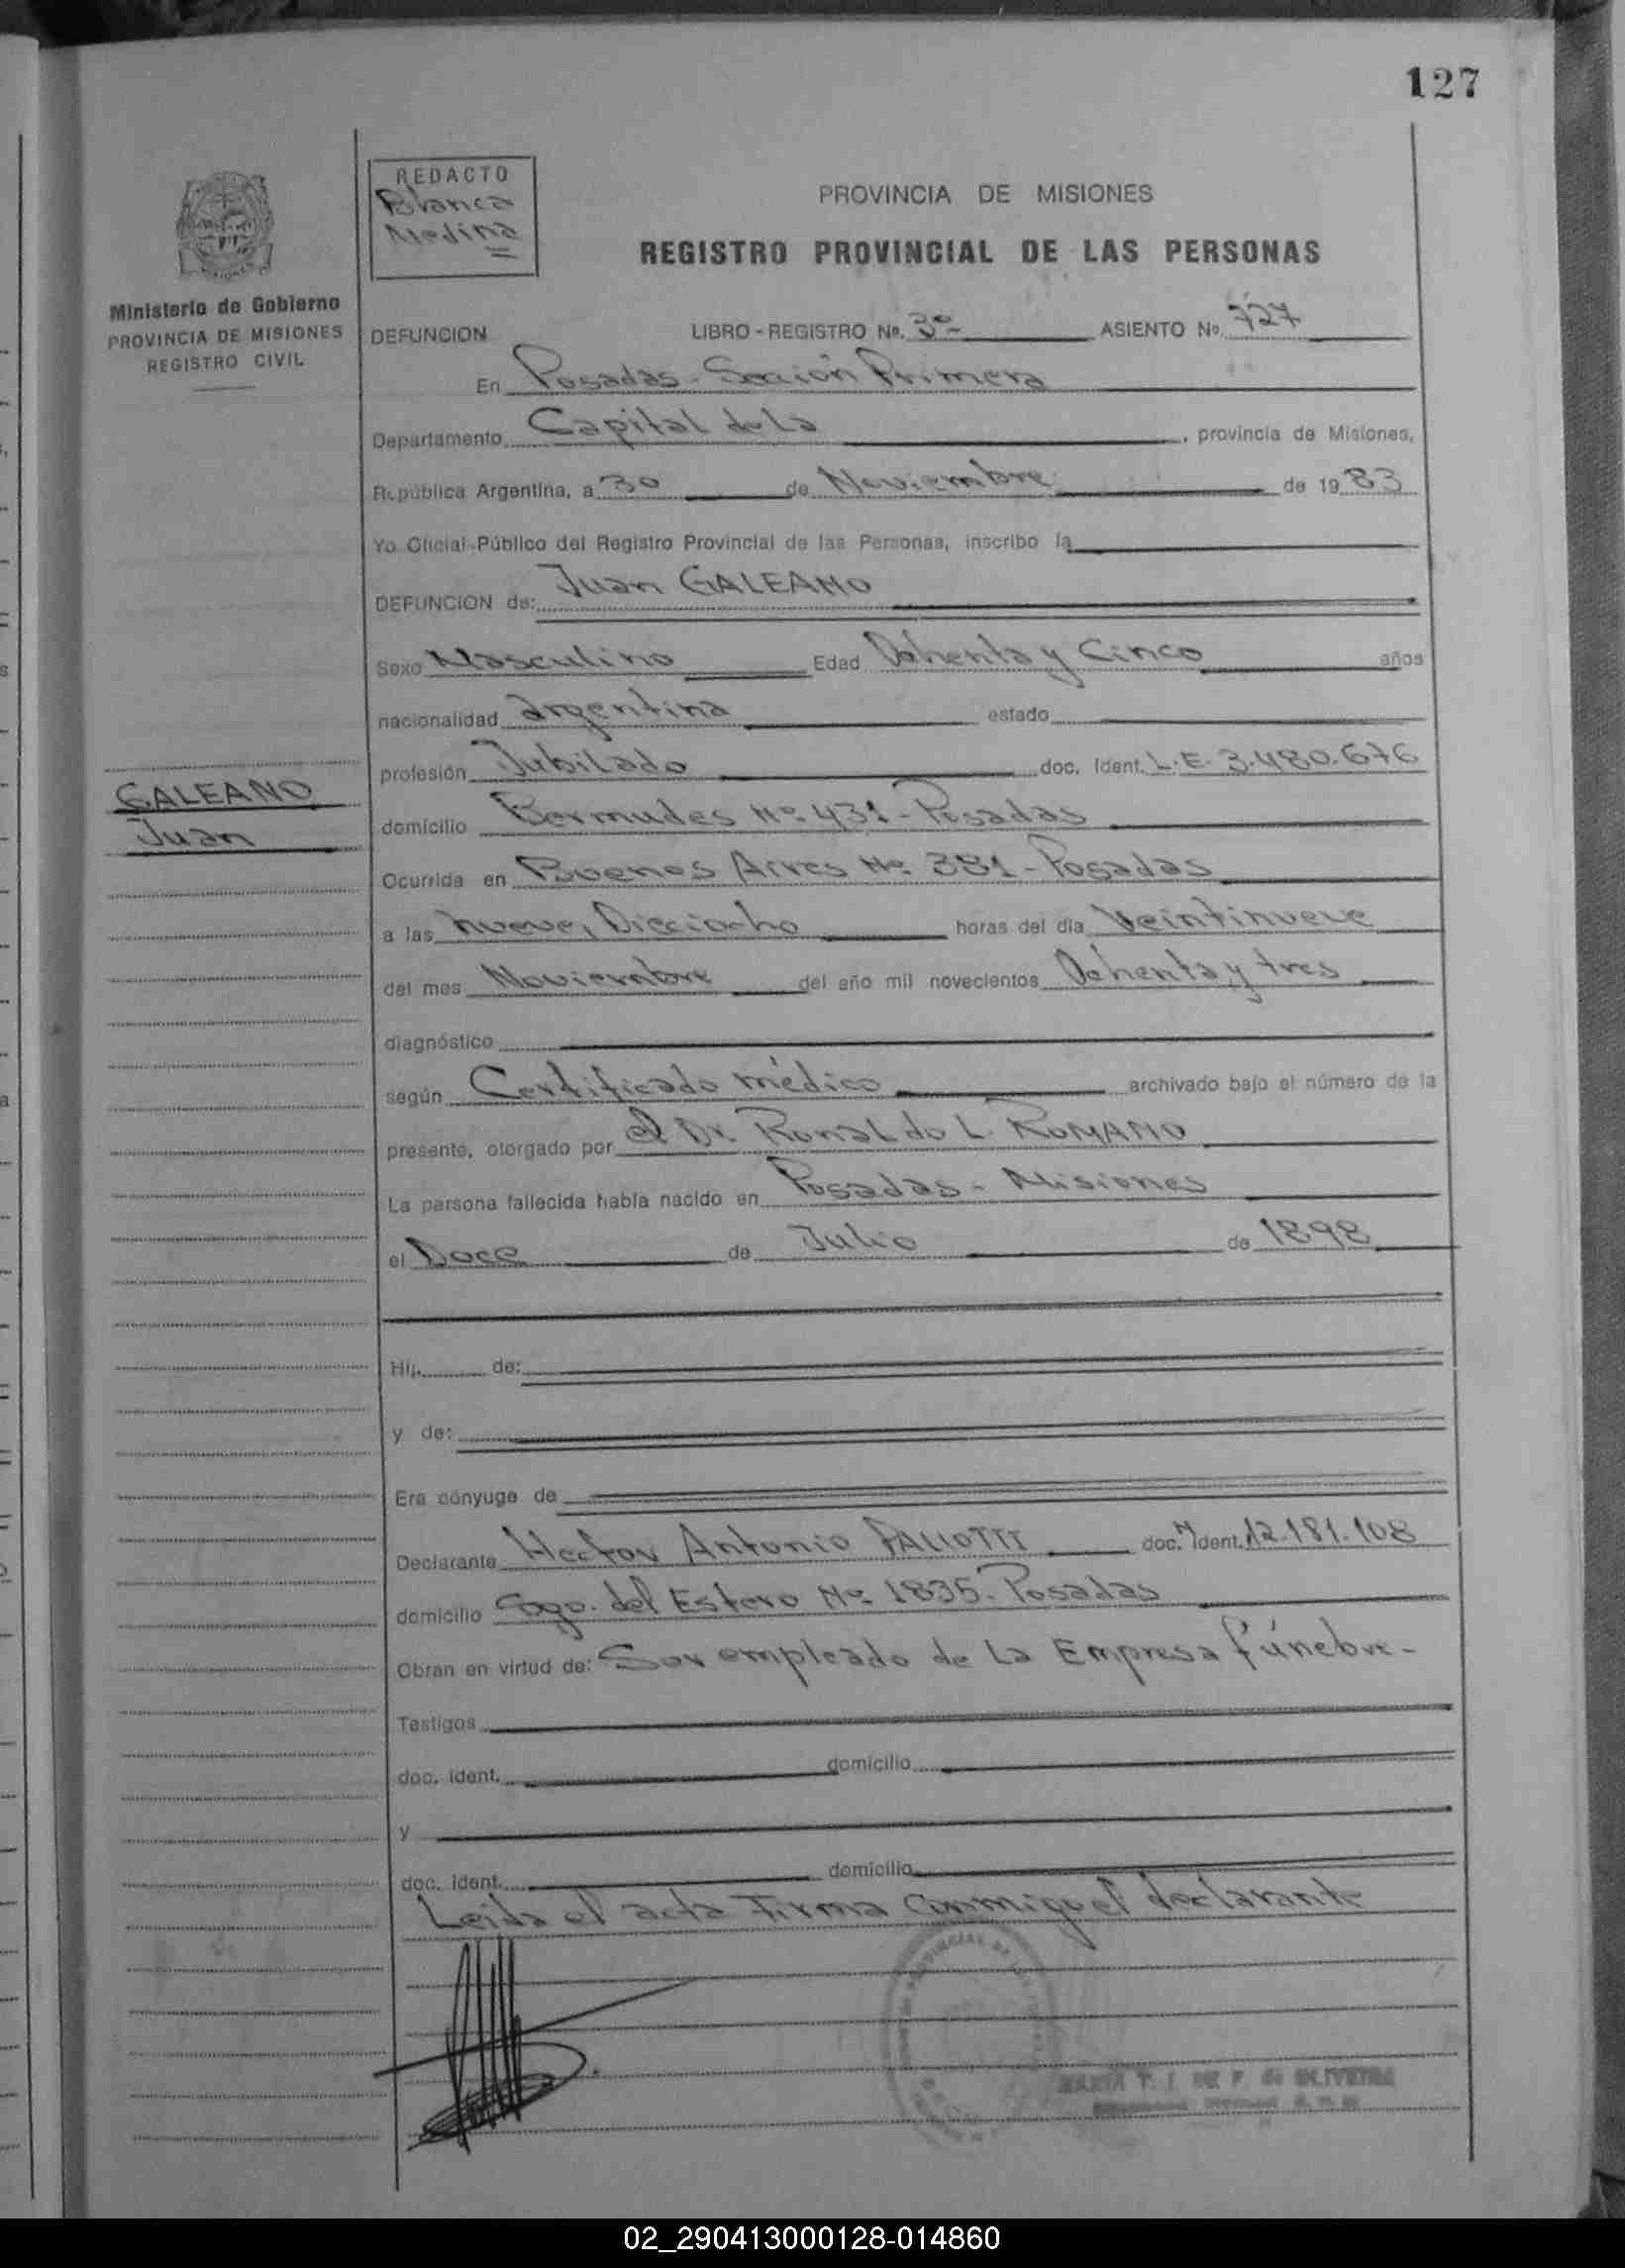 127
REDACTO
Blanca
Medina
PROVINCIA DE MISIONES
REGISTRO PROVINCIAL DE LAS PERSONAS
Ministerio de Gobierno
PROVINCIA DE MISIONES
REGISTRO CIVIL
DEFUNCION LIBRO - REGISTRO No. 3º ASIENTO No. 727
En Posadas - Sección Primera
Departamento Capital de la , provincia de Misiones,
República Argentina, a 30 de Noviembre de 1983
Yo Oficial Público del Registro Provincial de las Personas, inscribo la
DEFUNCION de: Juan GALEANO
Sexo Masculino Edad Ochenta y Cinco años
nacionalidad argentina estado
profesión Jubilado doc. Ident. L.E. 3.480.676
GALEANO
Juan
domicilio Bermudes Nº 431 - Posadas
Ocurrida en Buenos Aires Nº 381 - Posadas
a las nueve, Dieciocho horas del día Veintinueve
del mes Noviembre del año mil novecientos Ochenta y tres
diagnóstico
según Certificado médico archivado bajo el número de la
presente, otorgado por el Dr. Ronaldo L. ROMANO
La persona fallecida había nacido en Posadas - Misiones
el Doce de Julio de 1898
Hij. de:
y de:
Era cónyuge de
Declarante Hector Antonio doc. Ident. 12.181.108
domicilio Sgo. del Estero Nº 1835 - Posadas
Obran en virtud de: Ser empleado de la Empresa fúnebre -
Testigos
doc. ident. domicilio
y
doc. ident. domicilio
Leida el acta firma conmigo el declarante
OLIVEIRA
02_290413000128-014860